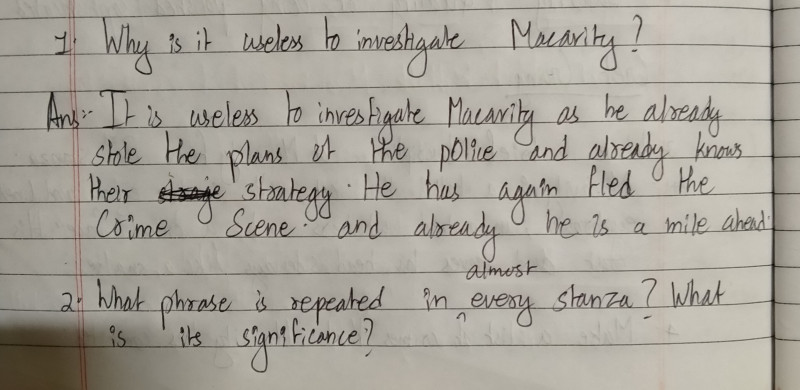 1. Why is it useless to investigate Macarity?
Ans:- It is useless to investigate Macarity as he already
stole the plans of the police and already knows
their strategy. He has again fled the
Crime Scene. and already he is a mile ahead.
almost
2. What phrase is repeated in ^ every stanza? What
is its significance?